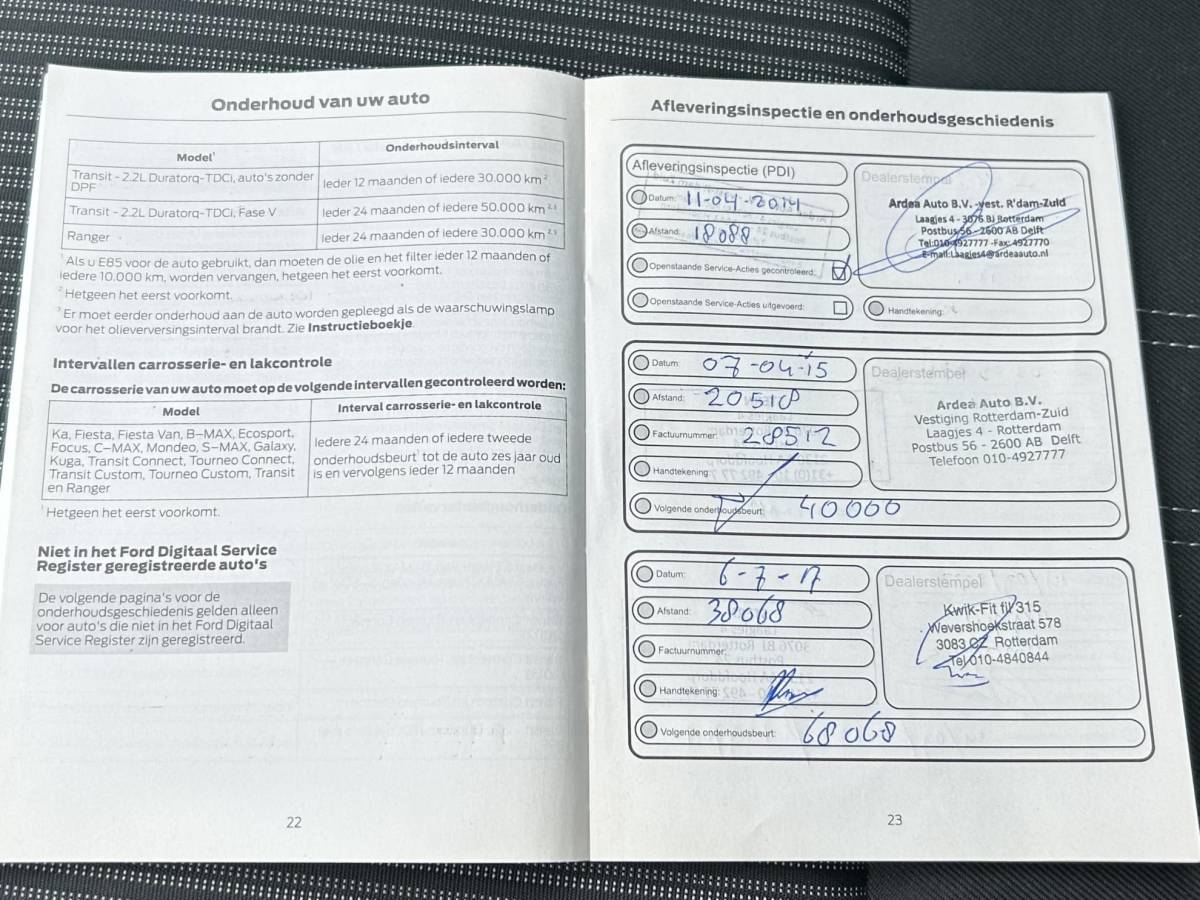 Onderhoud van uw auto
Model¹ Onderhoudsinterval
Transit - 2.2L Duratorq-TDCi, auto's zonder DPF Ieder 12 maanden of iedere 30.000 km ²
Transit - 2.2L Duratorq-TDCi, Fase V Ieder 24 maanden of iedere 50.000 km ²·³
Ranger Ieder 24 maanden of iedere 30.000 km ²·³
¹ Als u E85 voor de auto gebruikt, dan moeten de olie en het filter ieder 12 maanden of
iedere 10.000 km, worden vervangen, hetgeen het eerst voorkomt.
² Hetgeen het eerst voorkomt.
³ Er moet eerder onderhoud aan de auto worden gepleegd als de waarschuwingslamp
voor het olieverversingsinterval brandt. Zie Instructieboekje.
Intervallen carrosserie- en lakcontrole
De carrosserie van uw auto moet op de volgende intervallen gecontroleerd worden:
Model Interval carrosserie- en lakcontrole
Ka, Fiesta, Fiesta Van, B-MAX, Ecosport,
Focus, C-MAX, Mondeo, S-MAX, Galaxy,
Kuga, Transit Connect, Tourneo Connect,
Transit Custom, Tourneo Custom, Transit
en Ranger
Iedere 24 maanden of iedere tweede
onderhoudsbeurt¹ tot de auto zes jaar oud
is en vervolgens ieder 12 maanden
¹ Hetgeen het eerst voorkomt.
Niet in het Ford Digitaal Service
Register geregistreerde auto's
De volgende pagina's voor de
onderhoudsgeschiedenis gelden alleen
voor auto's die niet in het Ford Digitaal
Service Register zijn geregistreerd.
22
Afleveringsinspectie en onderhoudsgeschiedenis
Afleveringsinspectie (PDI)
Datum: 11-04-2014
Afstand: 18088
Openstaande Service-Acties gecontroleerd:
Openstaande Service-Acties uitgevoerd:
Dealerstempel
Ardea Auto B.V. -vest. R'dam-Zuid
Laagjes 4 - 3076 BJ Rotterdam
Postbus 56 - 2600 AB Delft
Tel:010-4927777 -Fax: 4927770
E-mail:Laagjes4@ardeaauto.nl
Handtekening:
Datum: 07-04-15
Afstand: 20518
Factuurnummer: 28512
Handtekening:
Volgende onderhoudsbeurt: 40000
Dealerstempel
Ardea Auto B.V.
Vestiging Rotterdam-Zuid
Laagjes 4 - Rotterdam
Postbus 56 - 2600 AB Delft
Telefoon 010-4927777
Datum: 6-7-17
Afstand: 38068
Factuurnummer:
Handtekening:
Volgende onderhoudsbeurt: 68068
Dealerstempel
Kwik-Fit fil 315
Wevershoekstraat 578
3083 Rotterdam
Tel 010-4840844
23